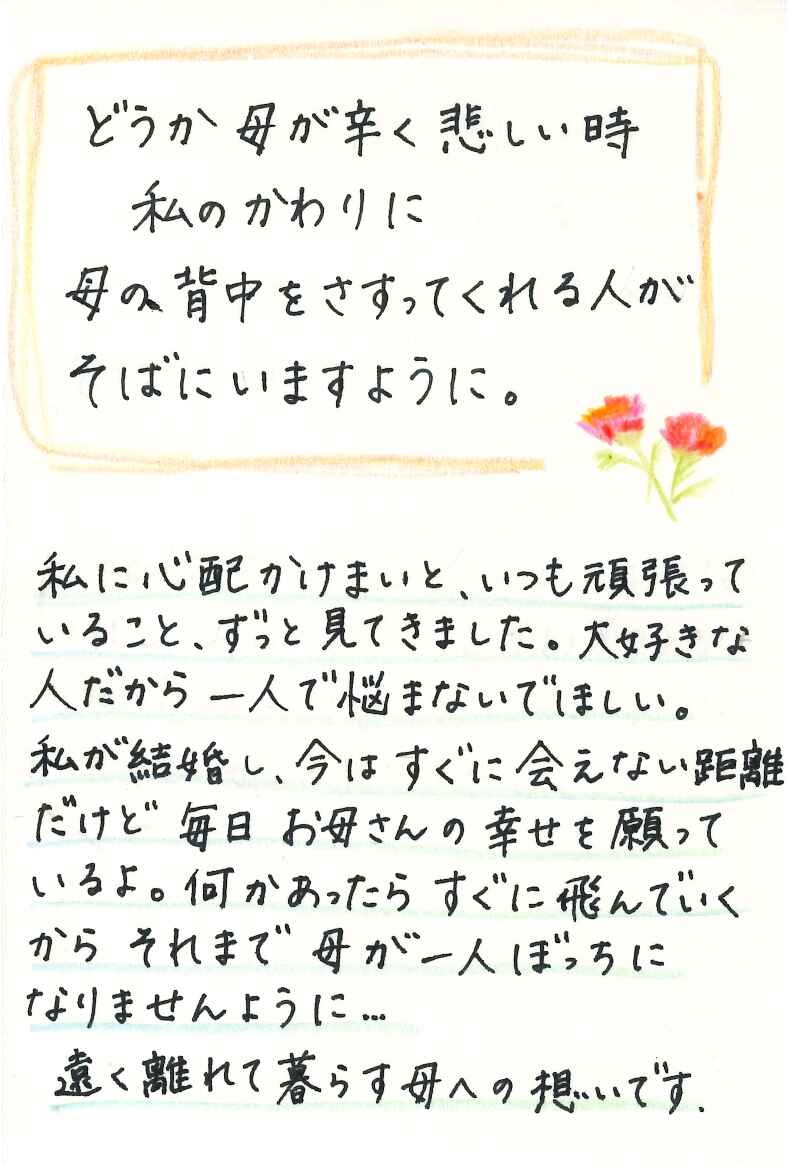 どうか 母が辛く悲しい時
私のかわりに
母の背中をさすってくれる人が
そばにいますように。
私に心配かけまいと、いつも頑張って
いること、ずっと見てきました。大好きな
人だから 一人で悩まないでほしい。
私が結婚し、今は すぐに 会えない距離
だけど 毎日 お母さんの 幸せを願って
いるよ。何かあったら すぐに 飛んでいく
から それまで 母が一人ぼっちに
なりませんように…
遠く離れて暮らす母への想いです.